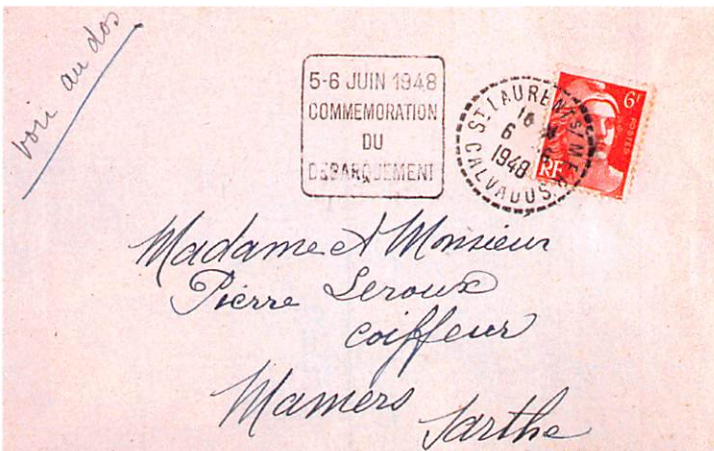 voir au dos
5-6 JUIN 1948
COMMEMORATION
DU
DEBARQUEMENT
ST LAURENT S/ MER
16
6 - 6
1948
CALVADOS
6F
POSTES
RF
Madame et Monsieur
Pierre Leroux
coiffeur
Mamers Sarthe